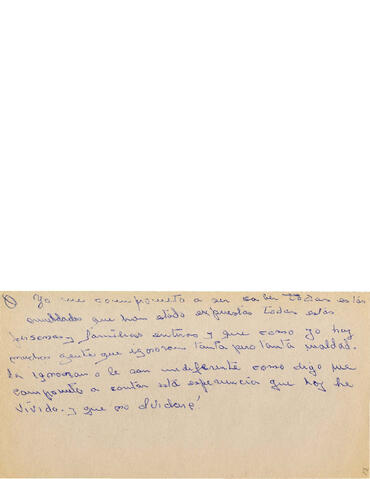 Yo me comprometa a ser saber todas estás
crueldades que han estado expuestas todas estás
personas y familias enteras y que como yo hay
muchas gente que ignoran tanta pero tanta maldad.
La ignoran o le son indiferente como digo me
comprometo a contar está experiencia que hoy he
vivido. y que no olvidaré!